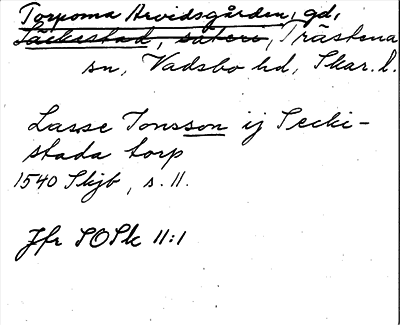 Torpoma Arvidsgården, gd,
Säckestad, säteri, Trästena
sn, Vadsbo hd, Skar. l.
Lasse Jonsson ij Secki-
stada torp
1540 Skjb, s. 11.
Jfr SOSk 11:1